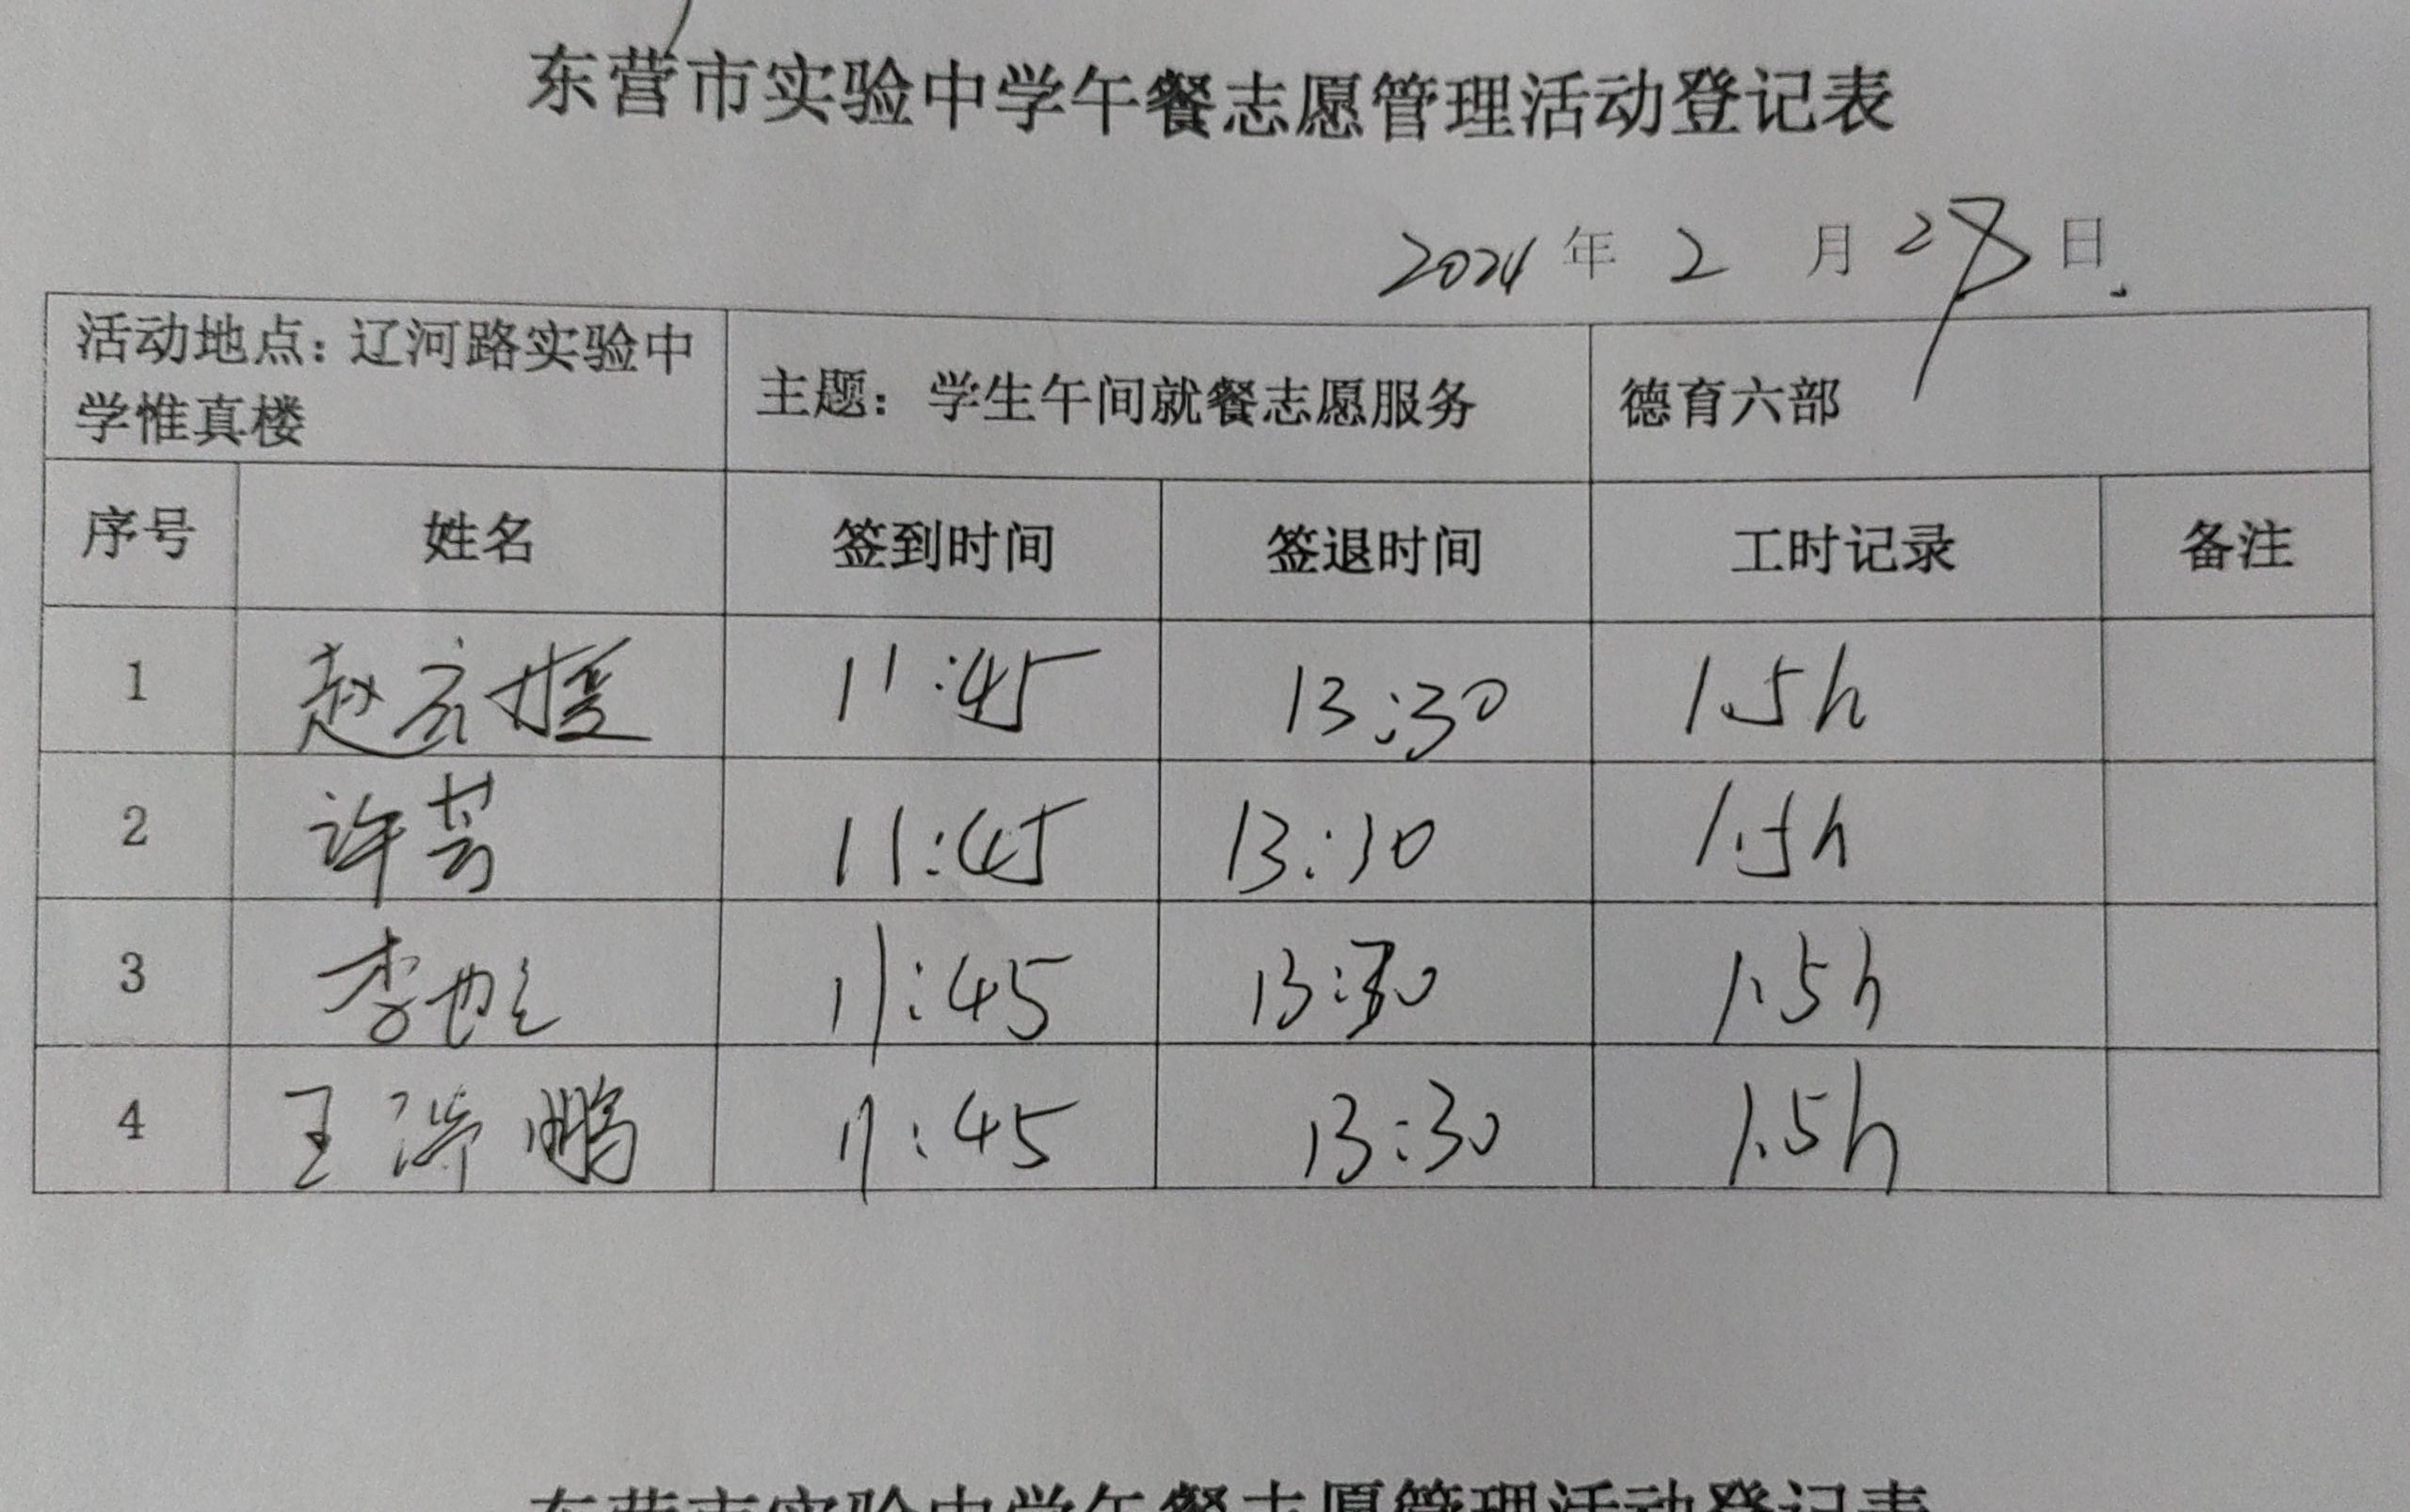 东营市实验中学午餐志愿管理活动登记表
2024 年 2 月 2 日
活动地点: 辽河路实验中
学惟真楼
主题: 学生午间就餐志愿服务
德育六部
序号 姓名 签到时间 签退时间 工时记录 备注
1 赵 媛 11:45 13:30 1.5h
2 许芸 11:45 13:30 1.5h
3 李 11:45 13:30 1.5h
4 王 鹏 11:45 13:30 1.5h
东营市实验中学午餐志愿管理活动登记表